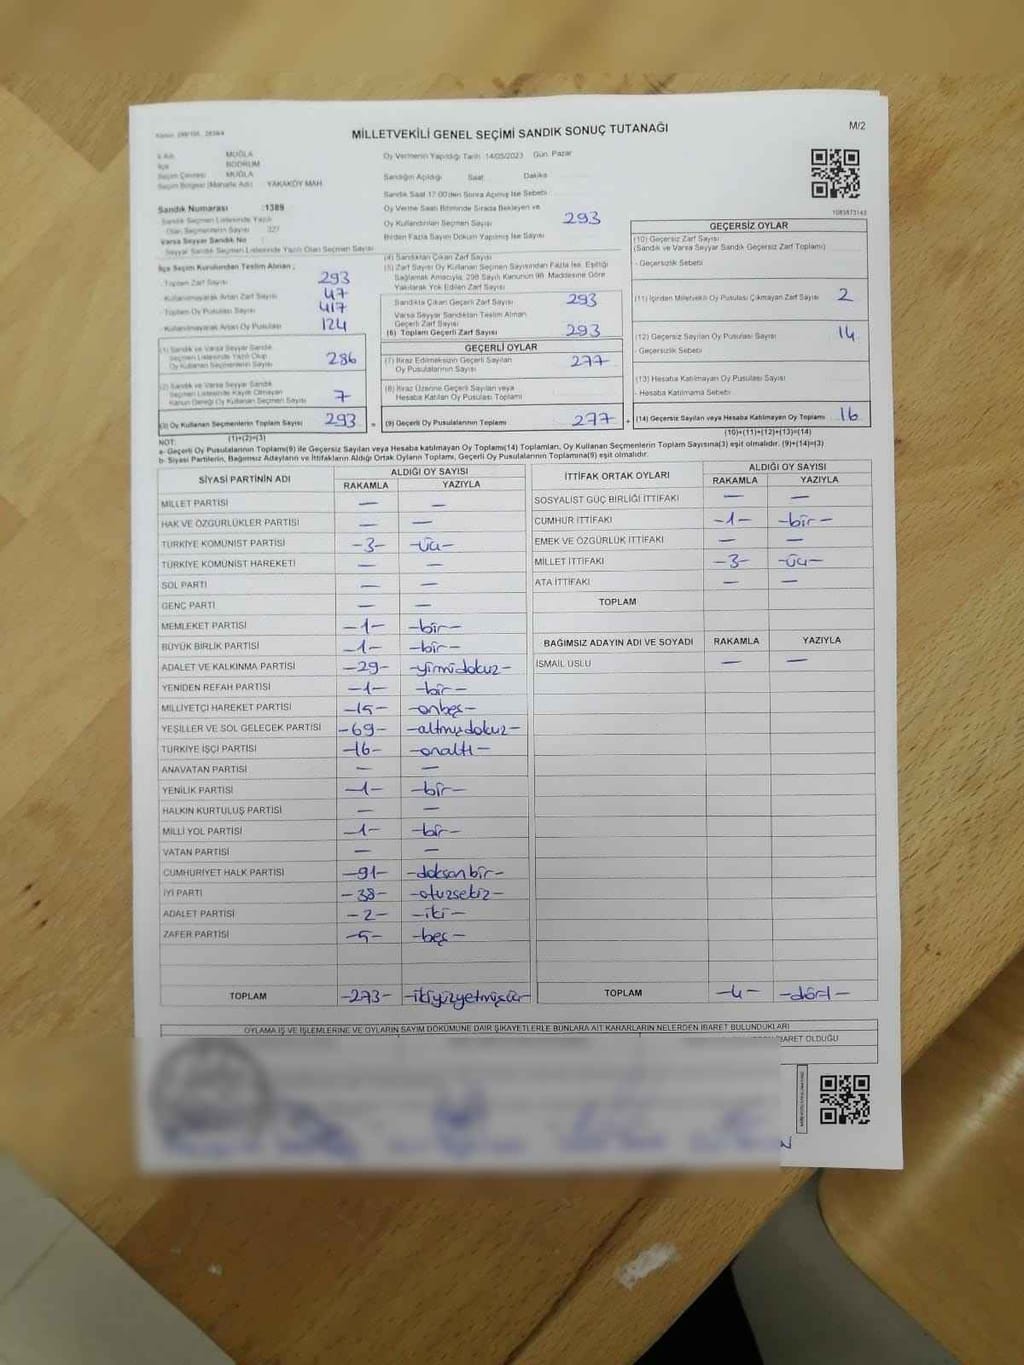 MİLLETVEKİLİ GENEL SEÇİMİ SANDIK SONUÇ TUTANAĞI
M/2
İli Adı MUĞLA
İlçe BODRUM
Seçim Çevresi MUĞLA
Seçim Bölgesi (Mahalle Adı) YAKAKÖY MAH.
Sandık Numarası : 1389
Sandık Seçmen Listesinde Yazılı
Olan Seçmenlerin Sayısı 327
Varsa Seyyar Sandık No
Seyyar Sandık Seçmen Listesinde Yazılı Olan Seçmen Sayısı
Oy Vermenin Yapıldığı Tarih 14/05/2023 Gün Pazar
Sandığın Açıldığı Saat Dakika
Sandık Saat 17:00'den Sonra Açılmış İse Sebebi
Oy Verme Saati Bitiminde Sırada Bekleyen ve
Oy Kullandırılan Seçmen Sayısı 293
Birden Fazla Sayım Döküm Yapılmış İse Sayısı
1083873143
İlçe Seçim Kurulundan Teslim Alınan ;
Toplam Zarf Sayısı 293
Kullanılmayarak Artan Zarf Sayısı 47
Toplam Oy Pusulası Sayısı 417
Kullanılmayarak Artan Oy Pusulası 124
(1) Sandık ve Varsa Seyyar Sandık
Seçmen Listesinde Yazılı Olup
Oy Kullanan Seçmenlerin Sayısı 286
(2) Sandık ve Varsa Seyyar Sandık
Seçmen Listesinde Kaydı Olmayan
Kanun Gereği Oy Kullanan Seçmen Sayısı 7
(3) Oy Kullanan Seçmenlerin Toplam Sayısı 293
(1)+(2)=(3)
(4) Sandıktan Çıkan Zarf Sayısı
(5) Zarf Sayısı Oy Kullanan Seçmen Sayısından Fazla İse, Eşitliği
Sağlamak Amacıyla, 298 Sayılı Kanunun 98. Maddesine Göre
Yakılarak Yok Edilen Zarf Sayısı
Sandıkta Çıkan Geçerli Zarf Sayısı 293
Varsa Seyyar Sandıktan Teslim Alınan
Geçerli Zarf Sayısı
(6) Toplam Geçerli Zarf Sayısı 293
GEÇERLİ OYLAR
(7) İtiraz Edilmeksizin Geçerli Sayılan
Oy Pusulalarının Sayısı 277
(8) İtiraz Üzerine Geçerli Sayılan veya
Hesaba Katılan Oy Pusulası Toplamı
= (9) Geçerli Oy Pusulalarının Toplamı 277
GEÇERSİZ OYLAR
(10) Geçersiz Zarf Sayısı
(Sandık ve Varsa Seyyar Sandık Geçersiz Zarf Toplamı)
- Geçersizlik Sebebi
(11) İçinden Milletvekili Oy Pusulası Çıkmayan Zarf Sayısı 2
(12) Geçersiz Sayılan Oy Pusulası Sayısı 14
- Geçersizlik Sebebi
(13) Hesaba Katılmayan Oy Pusulası Sayısı
- Hesaba Katılmama Sebebi
+ (14) Geçersiz Sayılan veya Hesaba Katılmayan Oy Toplamı 16
(10)+(11)+(12)+(13)=(14)
NOT:
a- Geçerli Oy Pusulalarının Toplamı(9) ile Geçersiz Sayılan veya Hesaba katılmayan Oy Toplamı(14) Toplamları, Oy Kullanan Seçmenlerin Toplam Sayısına(3) eşit olmalıdır. (9)+(14)=(3)
b- Siyasi Partilerin, Bağımsız Adayların ve İttifakların Aldığı Ortak Oyların Toplamı, Geçerli Oy Pusulalarının Toplamına(9) eşit olmalıdır.
SİYASİ PARTİNİN ADI ALDIĞI OY SAYISI
RAKAMLA YAZIYLA
MİLLET PARTİSİ — —
HAK VE ÖZGÜRLÜKLER PARTİSİ — —
TÜRKİYE KOMÜNİST PARTİSİ -3- -üç-
TÜRKİYE KOMÜNİST HAREKETİ — —
SOL PARTİ — —
GENÇ PARTİ — —
MEMLEKET PARTİSİ -1- -bir-
BÜYÜK BİRLİK PARTİSİ -1- -bir-
ADALET VE KALKINMA PARTİSİ -29- -yirmidokuz-
YENİDEN REFAH PARTİSİ -1- -bir-
MİLLİYETÇİ HAREKET PARTİSİ -15- -onbeş-
YEŞİLLER VE SOL GELECEK PARTİSİ -69- -altmışdokuz-
TÜRKİYE İŞÇİ PARTİSİ -16- -onaltı-
ANAVATAN PARTİSİ — —
YENİLİK PARTİSİ -1- -bir-
HALKIN KURTULUŞ PARTİSİ — —
MİLLİ YOL PARTİSİ -1- -bir-
VATAN PARTİSİ — —
CUMHURİYET HALK PARTİSİ -91- -doksanbir-
İYİ PARTİ -38- -otuzsekiz-
ADALET PARTİSİ -2- -iki-
ZAFER PARTİSİ -5- -beş-
TOPLAM -273- -ikiyüzyetmişüç-
İTTİFAK ORTAK OYLARI ALDIĞI OY SAYISI
RAKAMLA YAZIYLA
SOSYALİST GÜÇ BİRLİĞİ İTTİFAKI — —
CUMHUR İTTİFAKI -1- -bir-
EMEK VE ÖZGÜRLÜK İTTİFAKI — —
MİLLET İTTİFAKI -3- -üç-
ATA İTTİFAKI — —
TOPLAM
BAĞIMSIZ ADAYIN ADI VE SOYADI RAKAMLA YAZIYLA
İSMAİL USLU — —
TOPLAM -4- -dört-
OYLAMA İŞ VE İŞLEMLERİNE VE OYLARIN SAYIM DÖKÜMÜNE DAİR ŞİKAYETLERLE BUNLARA AİT KARARLARIN NELERDEN İBARET BULUNDUKLARI
İBARET OLDUĞU